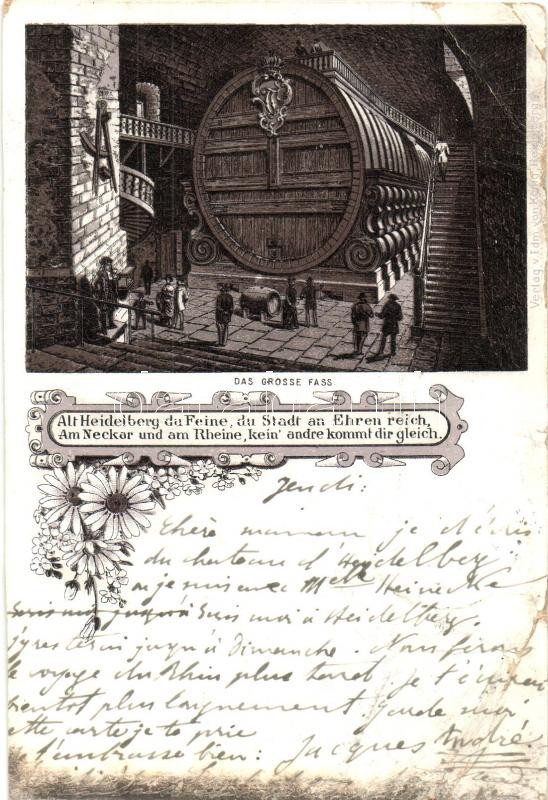 DAS GROSSE FASS
Alt Heidelberg du Feine, du Stadt an Ehren reich,
Am Neckar und am Rheine, kein' andre kommt dir gleich.
Jeudi:
Chère maman je t'écris
du chateau d'Heidelberg
où je suis avec Melle Heinecke
Suis moi à Heidelberg.
jusqu'à Dimanche. Nous ferons
le voyage du Rhin plus tard. je t'écrirai
bientot plus longuement. garde moi
cette carte je te prie
t'embrasse bien: Jacques André.
Verlag v. Edm. von König, Heidelberg